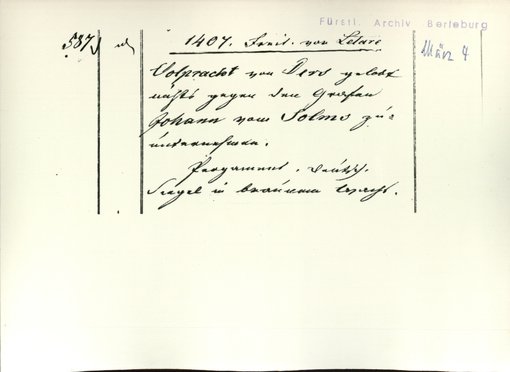 Fürstl. Archiv Berleburg
587
1407. Freit. vor Letare
März 4
Volpracht von Ders gelobt
nichts gegen den Grafen
Johann vom Solms zu
unternehmen.
Pergament. Deutsch.
Siegel in braunem Wachs.